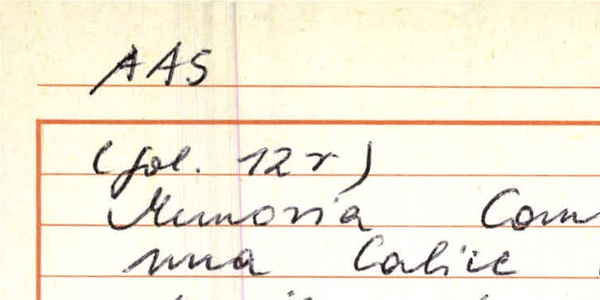 AAS
(fol. 12 r)
Memoria Com
una Calice